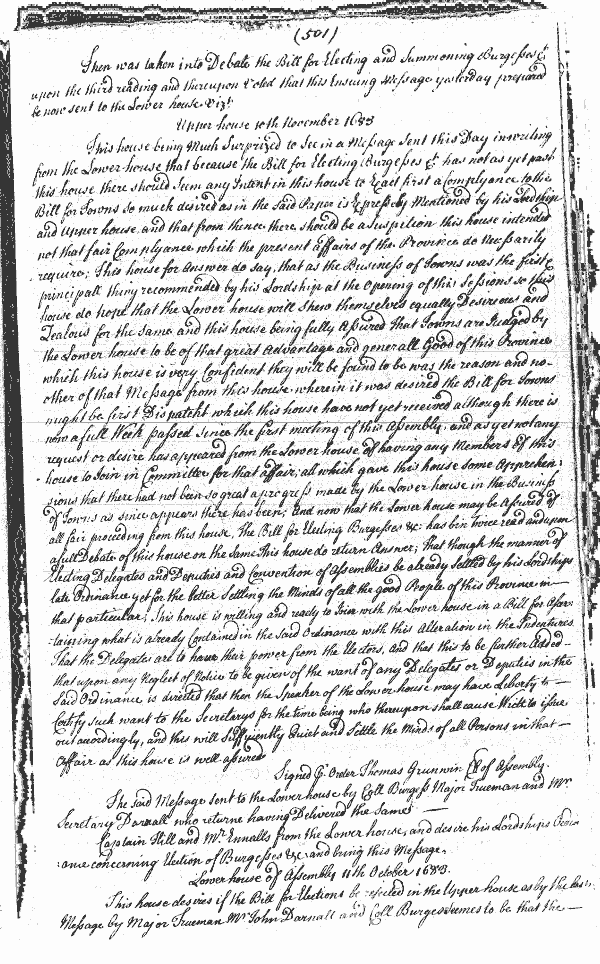 (501)
Then was taken into Debate the Bill for Electing and Summoning Burgesses &c
upon the third reading and thereupon Voted that this Ensuing Message yesterday prepared
be now sent to the Lower house Vizt
Upper house 10th November 1683
This house being Much Surprized to See in a Message Sent this Day in writing
from the Lower house that because the Bill for Electing Burgesses &c has not as yet past
this house there should Seem any Intent in this house to Exact first a Complyance to the
Bill for Towns so much desired as in the Said Paper is Expressly Mentioned by his Lordship
and Upper house, and that from thence there should be a Suspition this house intended
not that fair Complyance which the present Affairs of the Province do necessarily
require; This house for Answer do say, that as the Business of Towns was the first &
principall thing recommended by his Lordship at the Opening of this Sessions so this
house do hope that the Lower house will Shew themselves equally Desireous and
Zealous for the same and this house being fully Assured that Towns are Judged by
the Lower house to be of that great Advantage and generall Good of this Province
which this house is very Confident they will be found to be was the reason and no
other of that Message from this house wherein it was desired the Bill for Towns
might be first Dispatcht which this house have not yet received although there is
now a full Week passed since the first meeting of this Assembly, and as yet not any
request or desire has appeared from the Lower house of having any Members of this
house to Join in Committee for that affair; all which gave this house some Apprehen=
sions that there had not been so great a progress made by the Lower house in the Business
of Towns as since appears there has been; And now that the Lower house may be Assured of
all fair proceeding from this house, The Bill for Electing Burgesses &c: has bin twice read and upon
a full Debate of this house on the Same This house do return Answer; That though the manner of
Electing Delegates and Deputies and Convention of Assemblies be already Settled by his Lordships
late Ordinance yet for the better Settling the Minds of all the good People of this Province in
that particular; This house is willing and ready to Join with the Lower house in a Bill for Assur=
taining what is already Contained in the Said Ordinance with this Alteration in the Indentures
That the Delegates are to have their power from the Electors, and that this to be further Added
that upon any Neglect of Notice to be given of the want of any Delegates or Deputies in the
Said Ordinance is directed that then the Speaker of the Lower house may have Liberty to
Certify Such want to the Secretarys for the time being who thereupon shall cause Writts to issue
out accordingly, and this will Sufficiently Quiet and Settle the Minds of all Persons in that
Affair as this house is well assured
Signed p. Order Thomas Grunwin Cl of Assembly.
The said Message sent to the Lower house by Coll Burgess Major Trueman and Mr
Secretary Darnall who return having Delivered the Same
Captain Hill and Mr Ennalls from the Lower house, and desire his Lordships
concerning Election of Burgesses &c: and bring this Message,
Lower house of Assembly 11th October 1683.
This house desires if the Bill for Elections be rejected in the Upper house as by the last
Message by Major Trueman Mr John Darnall and Coll Burges seemes to be that the